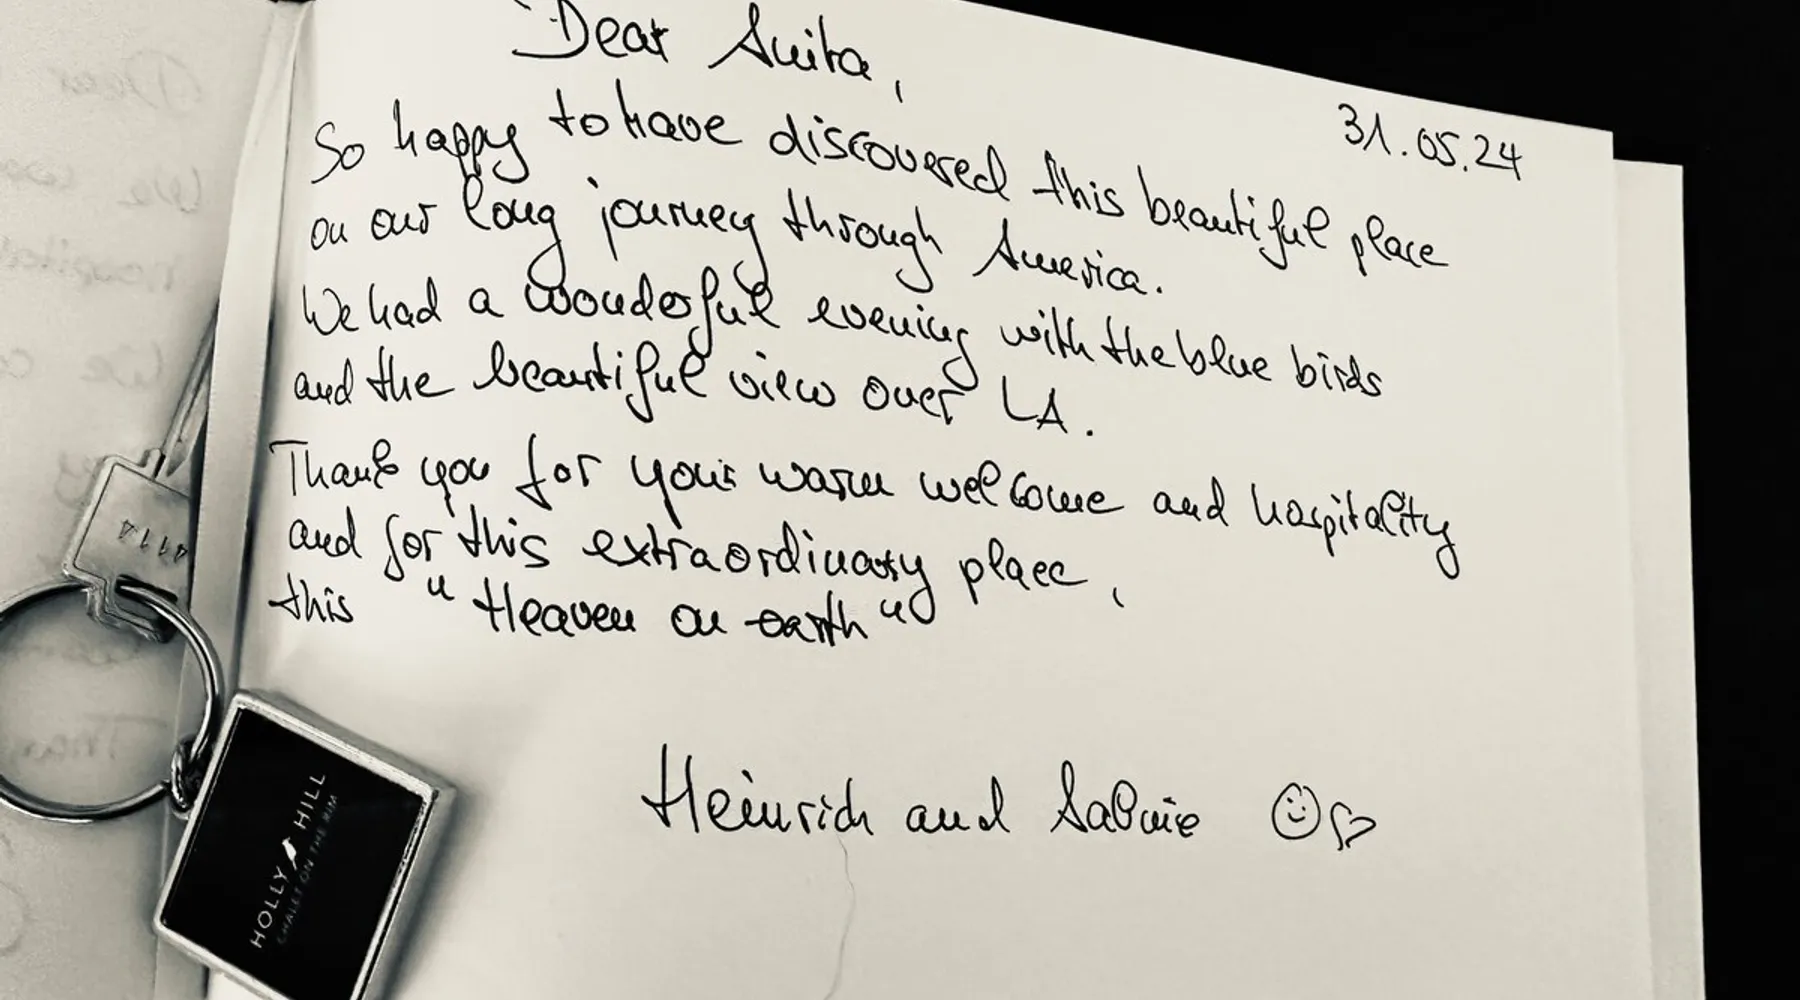 Dear Anita,
31.05.24
So happy to have discovered this beautiful place
on our long journey through America.
We had a wonderful evening with the blue birds
and the beautiful view over LA.
Thank you for your warm welcome and hospitality
and for this extraordinary place,
this "Heaven on earth"
Heinrich and Sabine
HOLLY HILL
CHALET ON THE RIM